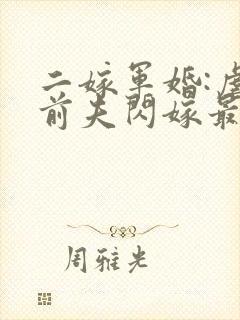 二嫁軍婚:虐
前夫閃嫁最
周雅光